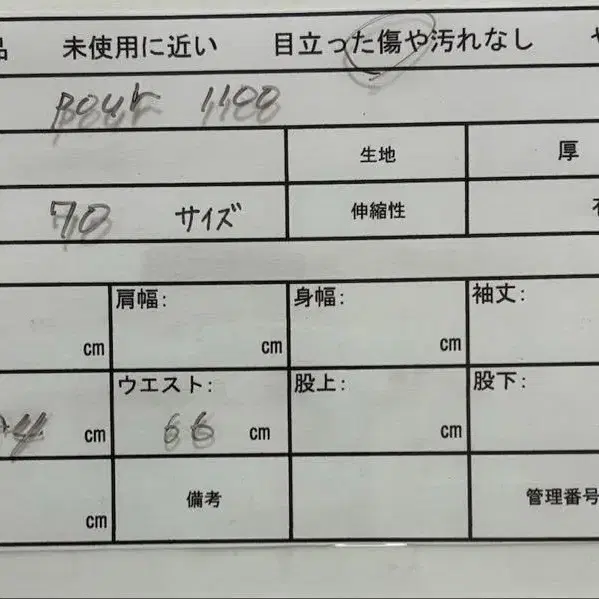 品 未使用に近い 目立った傷や汚れなし
pour 1100
生地 厚
70 サイズ 伸縮性
肩幅: 身幅: 袖丈:
cm cm cm
ウエスト: 股上: 股下:
4 cm 66 cm cm
備考 管理番号
cm